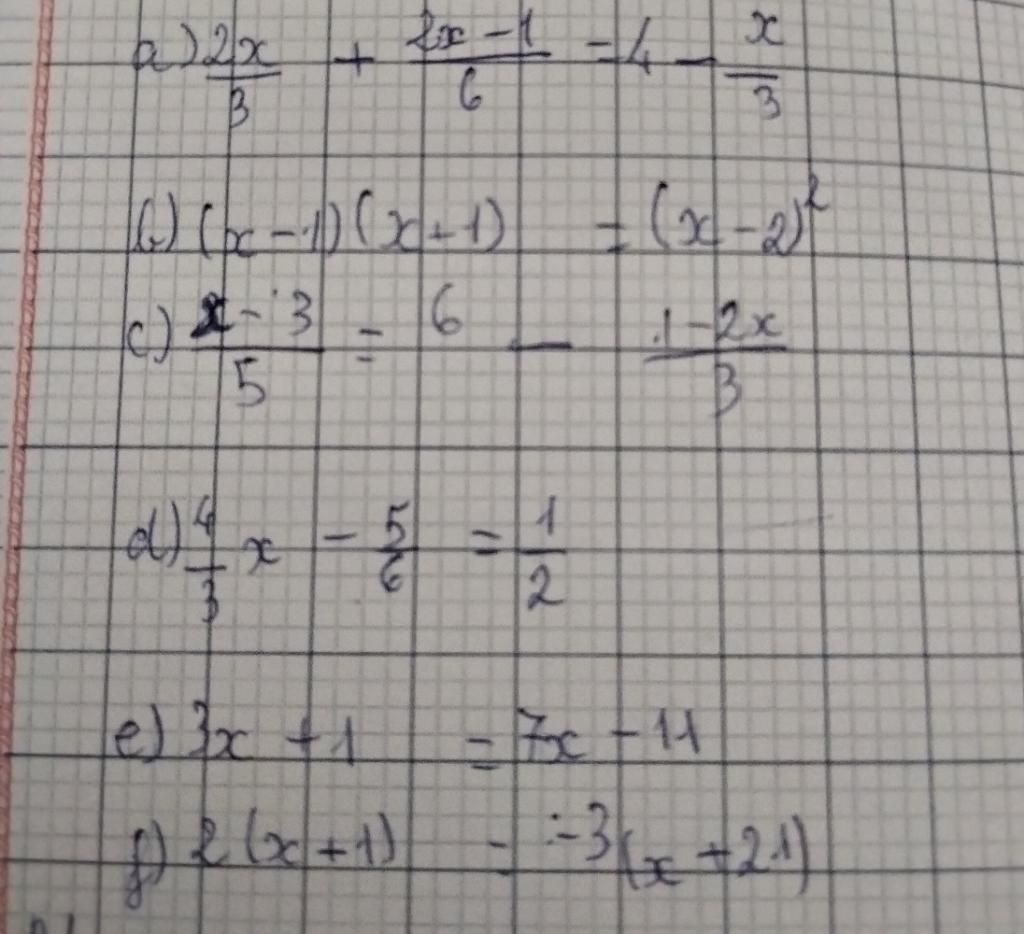 a) 2x/3 + 2x - 1/6 = 4 - x/3
b) (x - 1)(x + 1) = (x - 2)²
c) x - 3/5 = 6 - 1 - 2x/3
d) 4/3 x - 5/6 = 1/2
e) 3x + 1 = 7x - 11
f) 2(x + 1) = -3(x + 21)